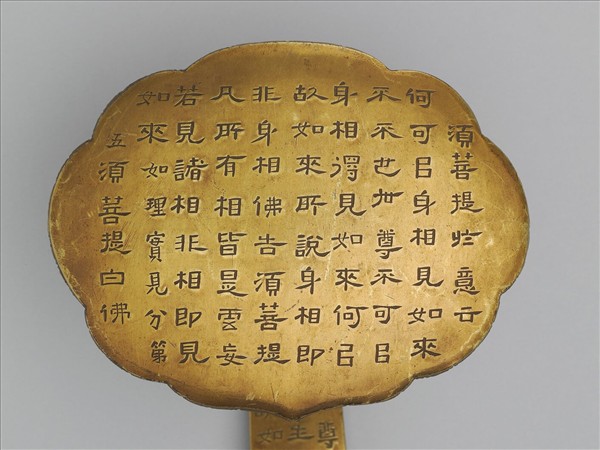 須菩提扵意云
何可㠯身相見如來
不不也丗尊不可㠯
身相得見如來何㠯
故如來所說身相即
非身相佛告須菩提
凡所有相皆是虛妄
若見諸相非相即見
如來如理實見分第
五須菩提白佛
尊
生
如